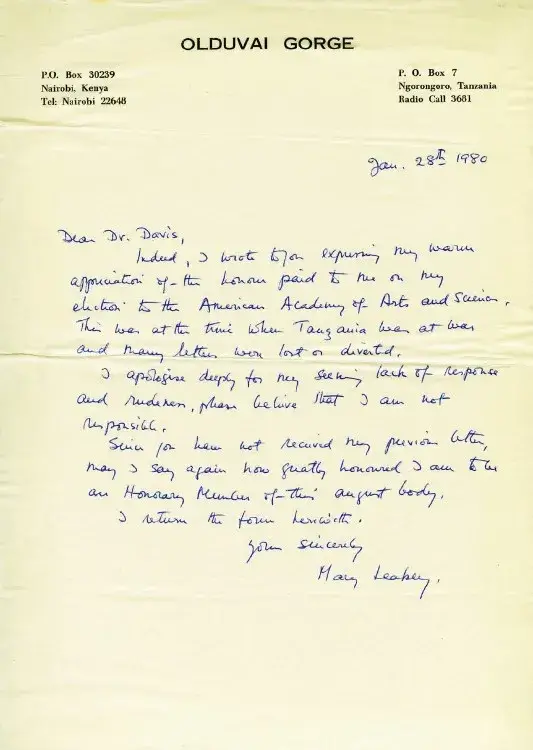 OLDUVAI GORGE
P.O. Box 30239
Nairobi, Kenya
Tel: Nairobi 22648
P. O. Box 7
Ngorongoro, Tanzania
Radio Call 3681
Jan. 28th 1980
Dear Dr. Davis,
Indeed, I wrote to you expressing my warm
appreciation of the honour paid to me on my
election to the American Academy of Arts and Sciences.
This was at the time when Tanzania was at war
and many letters were lost or diverted.
I apologise deeply for my seeming lack of response
and rudeness, please believe that I am not
responsible.
Since you have not received my previous letter,
may I say again how greatly honoured I am to be
an Honorary Member of this august body.
I return the form herewith.
Yours sincerely
Mary Leakey.